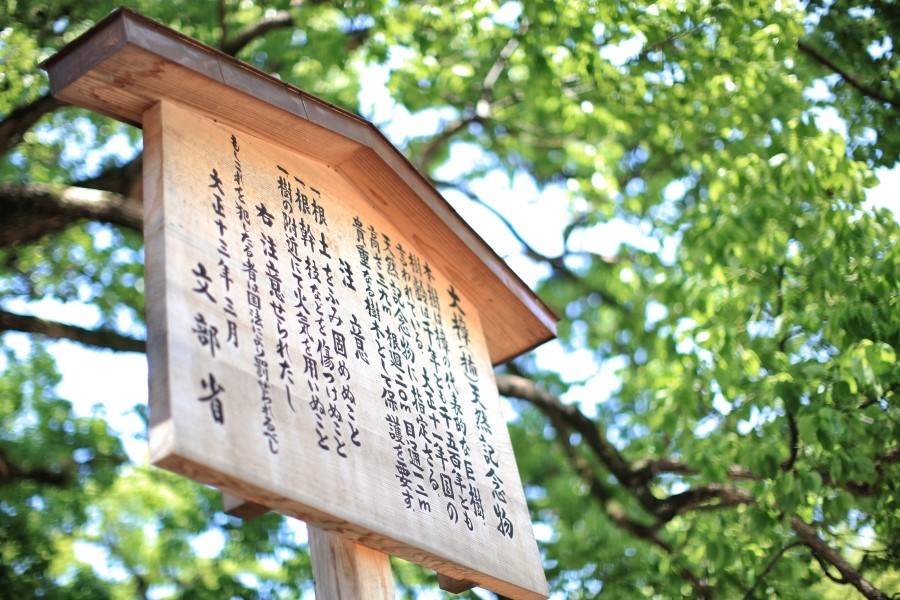 大樟樹天然記念物
本樹は樟の代表的な巨樹
樹齢は千年とも千五百年とも
言われている。大正十一年国の
天然記念物に指定さる
高さ三九m 根廻二〇m 目通一二m
貴重なる樹木として保護を要す。
注 意
一根 土をふみ固めぬこと
一根幹枝などを傷つけぬこと
一樹の附近にて火気を用いぬこと
右 注意せられたし
もしこれを犯したる者は国法により罰せられるべし
大正十三年三月
文部省